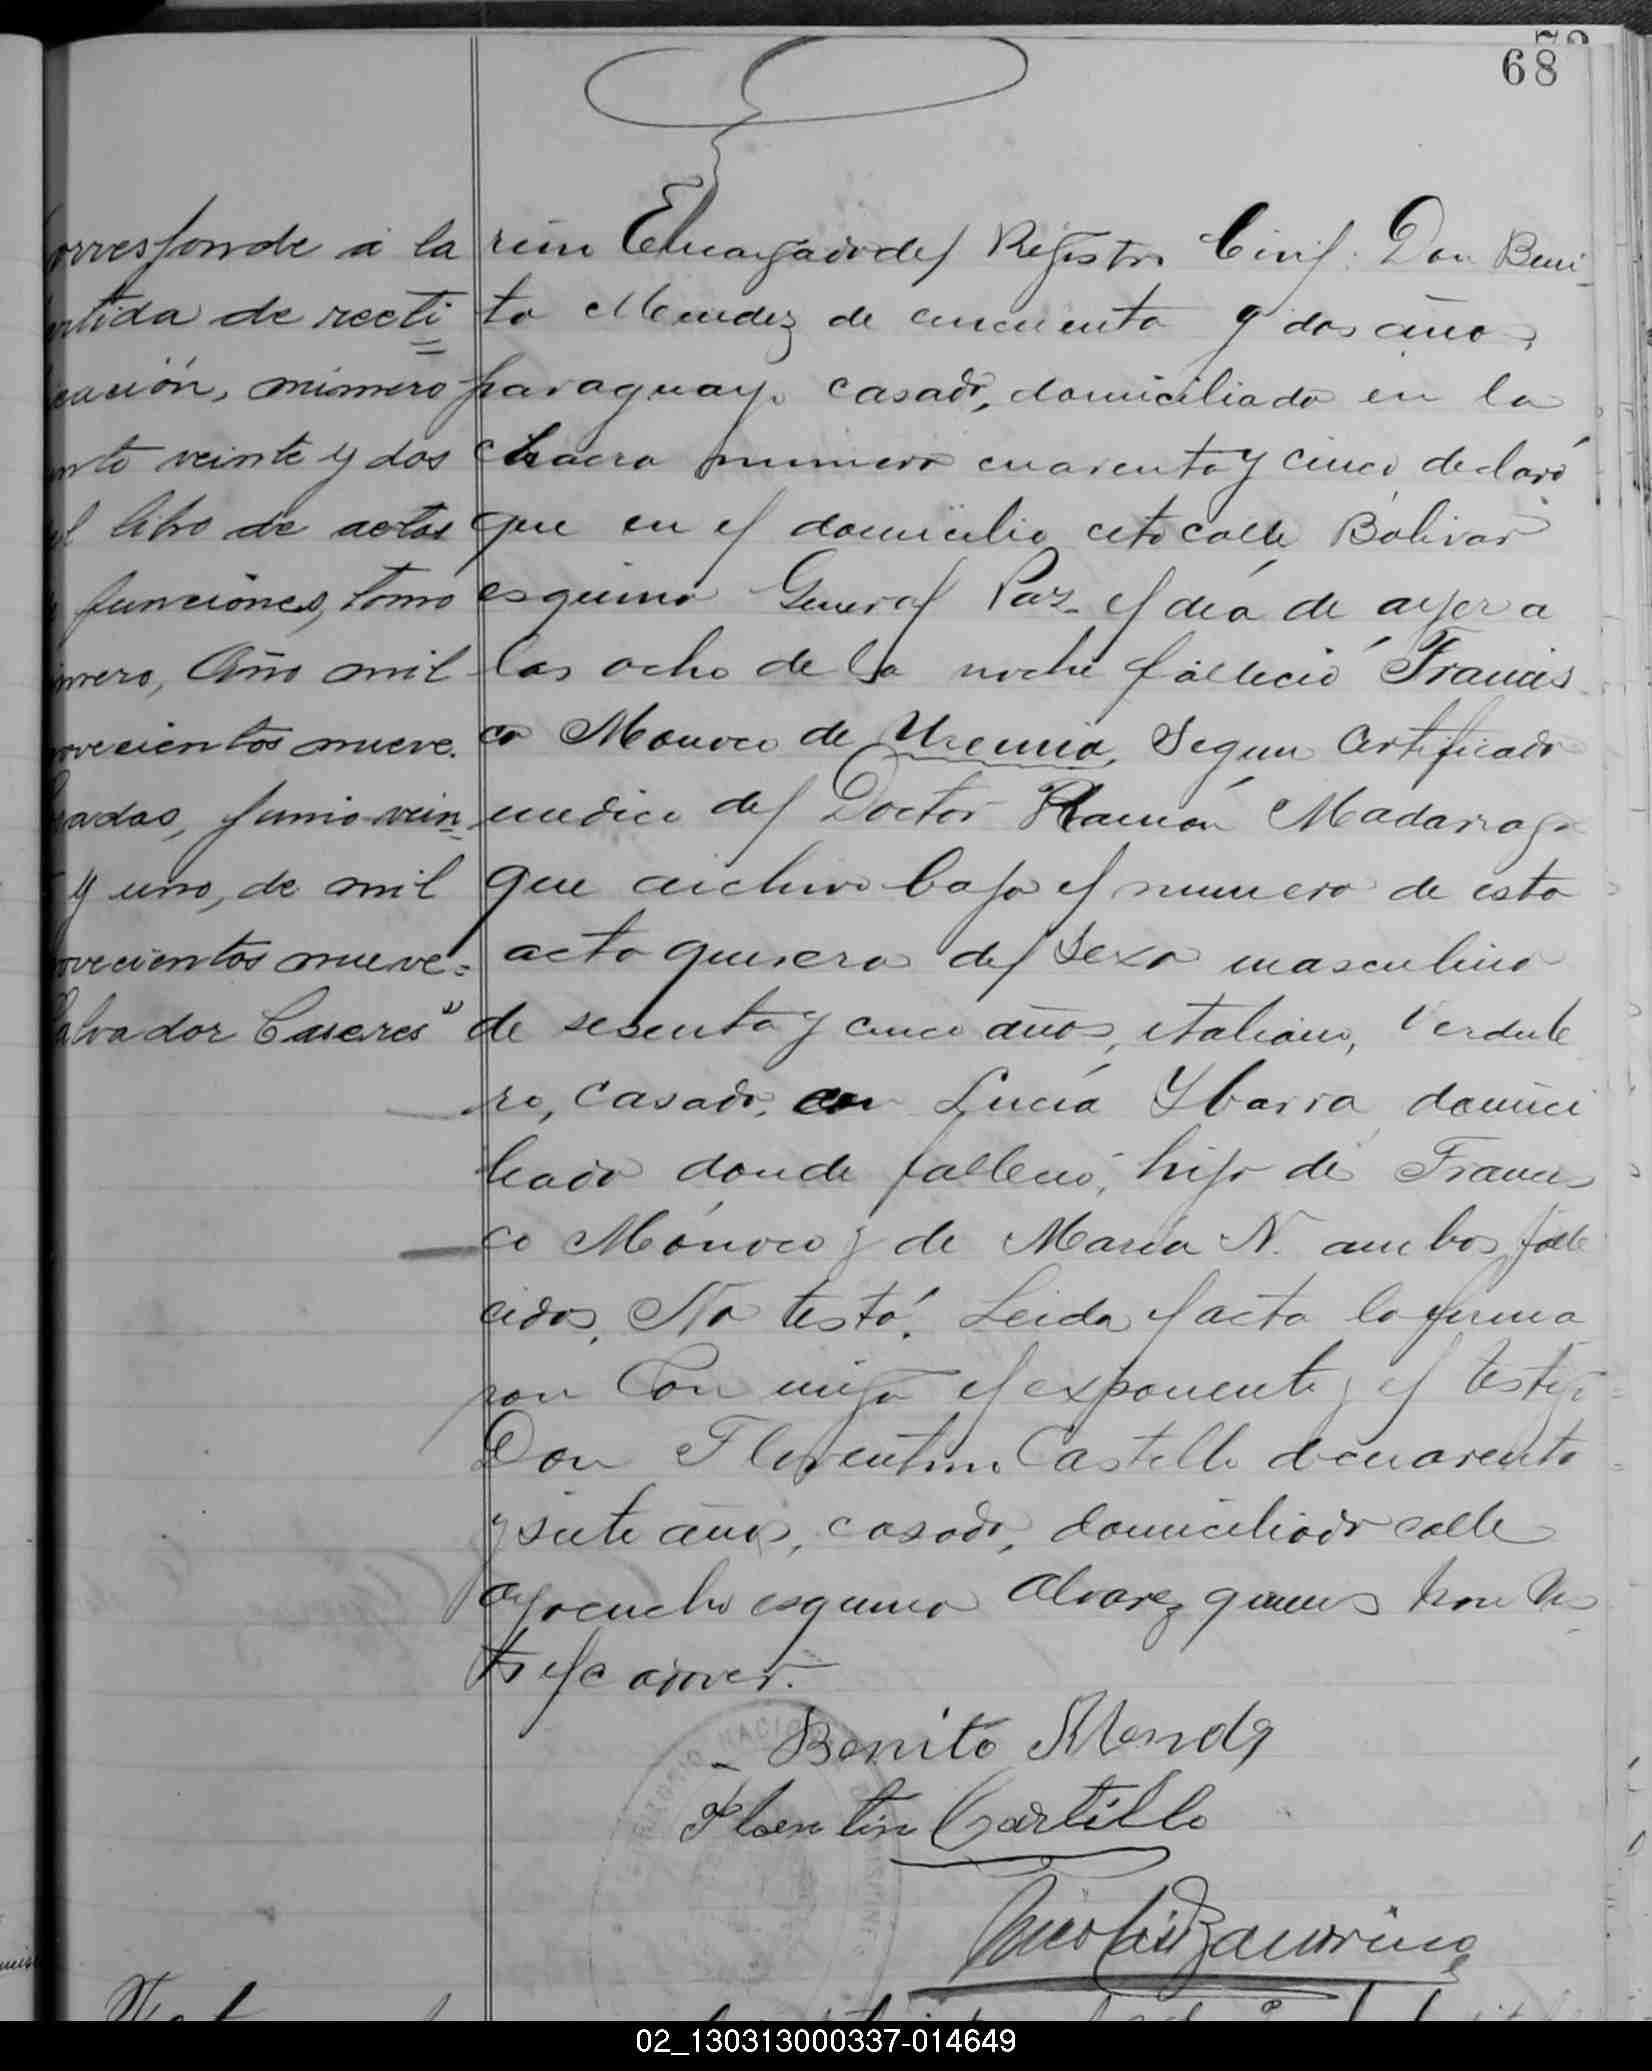 68
orresponde á la
rtida de recti
cación, número
nto veinte y dos
l libro de actas
funciones, tomo
imero, Año mil
ovecientos nueve.
adas, Junio vein
y uno, de mil
ovecientos nueve=
alvador Caceres"
rino Encargado del Registro Civil: Don Beni
to Mendez de cincuenta y dos años,
paraguayo casado, domiciliado en la
chacra numero cuarenta y cinco declaró
que en el domicilio cito calle Bolivar
esquina General Paz el día de ayer a
las ocho de la noche falleció Francis
co Monoco de Uremia, Segun Certificado
medico del Doctor Ramón Madariaga
que archivo bajo el numero de esta
acta que era del Sexo masculino
de sesenta y cinco años, italiano, Verdule
ro, casado, con Lucía Ybarra domici
liado donde falleció, hijo de Francis
co Mónoco y de María N. ambos falle
cidos, No testó. Leida el acta la firma
ron Con migo el exponente y el testigo
Don Florentin Castillo de cuarenta
y siete años, casado, domiciliado calle
Ayacucho esquina Alvarez quienes han vis
to el cadaver.
Benito Mendez
Florentin Castillo
02_130313000337-014649